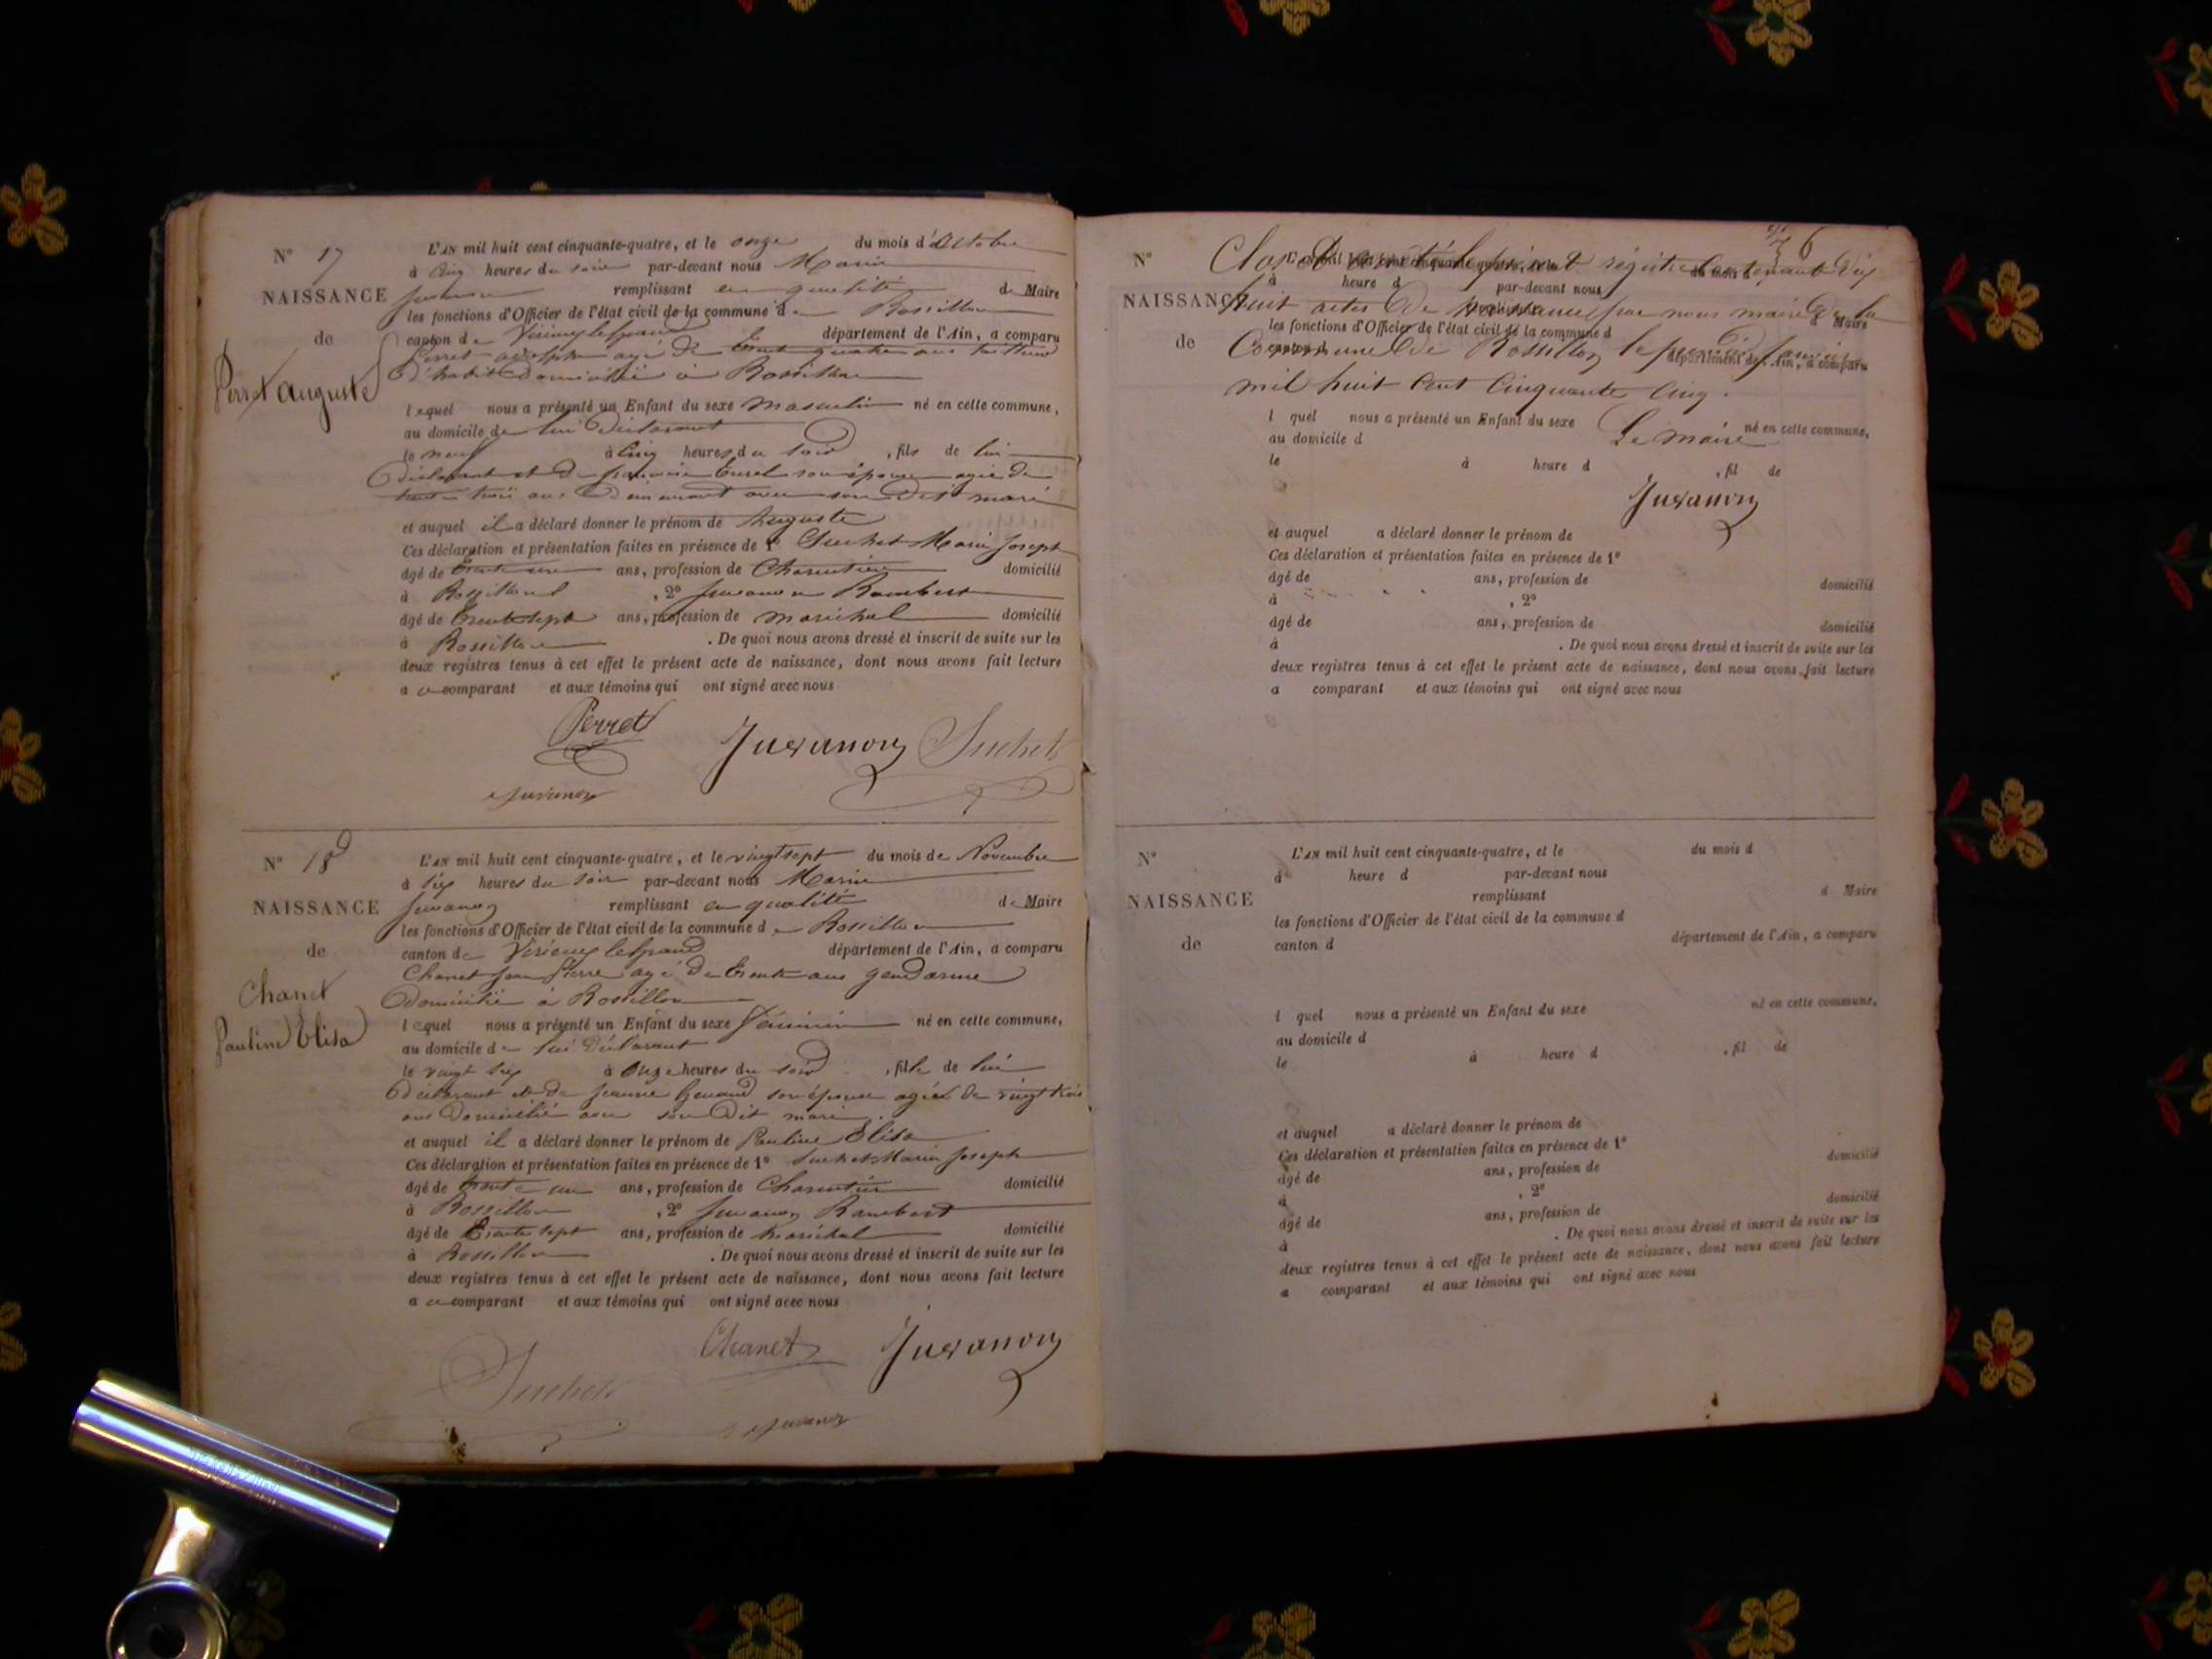 N° 17
NAISSANCE
de
Perret Auguste
L'AN mil huit cent cinquante-quatre, et le onze du mois d'Octobre
à cinq heures du soir par-devant nous Marin
Juvanon remplissant en qualité de Maire
les fonctions d'Officier de l'état civil de la commune de Rossillon
canton de Virieu le grand département de l'Ain, a comparu
Perret agé de trente quatre ans tailleur
d'habits domicilié à Rossillon
lequel nous a présenté un Enfant du sexe masculin né en cette commune,
au domicile de lui déclarant
le neuf à cinq heures du soir, fils de lui
déclarant et de son épouse agée de
trente trois ans demeurant avec son dit mari
et auquel il a déclaré donner le prénom de Auguste
Ces déclaration et présentation faites en présence de 1° Suchet Marin Joseph
âgé de trente un ans, profession de Charcutier domicilié
à Rossillon, 2° Juvanon Rambert
âgé de trente sept ans, profession de maréchal domicilié
à Rossillon. De quoi nous avons dressé et inscrit de suite sur les
deux registres tenus à cet effet le présent acte de naissance, dont nous avons fait lecture
a ce comparant et aux témoins qui ont signé avec nous
Perret Juvanon Suchet
Juvanon
N° 18
NAISSANCE
de
Chanet
Pauline Elisa
L'AN mil huit cent cinquante-quatre, et le vingt sept du mois de Novembre
à six heures du soir par-devant nous Marin
Juvanon remplissant en qualité de Maire
les fonctions d'Officier de l'état civil de la commune de Rossillon
canton de Virieu le grand département de l'Ain, a comparu
Chanet Jean Pierre agé de trente ans gendarme
domicilié à Rossillon
lequel nous a présenté un Enfant du sexe féminin né en cette commune,
au domicile de lui déclarant
le vingt six à onze heures du soir, fille de lui
déclarant et de Jeanne son épouse agée de vingt trois
ans domiciliée avec son dit mari
et auquel il a déclaré donner le prénom de Pauline Elisa
Ces déclaration et présentation faites en présence de 1° Suchet Marin Joseph
âgé de trente un ans, profession de Charcutier domicilié
à Rossillon, 2° Juvanon Rambert
âgé de trente sept ans, profession de maréchal domicilié
à Rossillon. De quoi nous avons dressé et inscrit de suite sur les
deux registres tenus à cet effet le présent acte de naissance, dont nous avons fait lecture
a ce comparant et aux témoins qui ont signé avec nous
Chanet Juvanon
Suchet
Juvanon
6
N°
NAISSANCE
de
Clos et arrêté le présent registre contenant dix
à heure d par-devant nous
huit actes de naissance par nous maire de la
d Maire
les fonctions d'Officier de l'état civil de la commune d
Commune de Rossillon le premier janvier
département de l'Ain, a comparu
mil huit cent cinquante cinq.
l quel nous a présenté un Enfant du sexe né en cette commune,
Le maire
au domicile d
le à heure d , fil de
Juvanon
et auquel a déclaré donner le prénom de
Ces déclaration et présentation faites en présence de 1°
âgé de ans, profession de domicilié
à , 2°
âgé de ans, profession de domicilié
à . De quoi nous avons dressé et inscrit de suite sur les
deux registres tenus à cet effet le présent acte de naissance, dont nous avons fait lecture
a comparant et aux témoins qui ont signé avec nous
N°
NAISSANCE
de
L'AN mil huit cent cinquante-quatre, et le du mois d
à heure d par-devant nous
remplissant d Maire
les fonctions d'Officier de l'état civil de la commune d
canton d département de l'Ain, a comparu
l quel nous a présenté un Enfant du sexe né en cette commune,
au domicile d
le à heure d , fil de
et auquel a déclaré donner le prénom de
Ces déclaration et présentation faites en présence de 1°
âgé de ans, profession de domicilié
à , 2°
âgé de ans, profession de domicilié
à . De quoi nous avons dressé et inscrit de suite sur les
deux registres tenus à cet effet le présent acte de naissance, dont nous avons fait lecture
a comparant et aux témoins qui ont signé avec nous